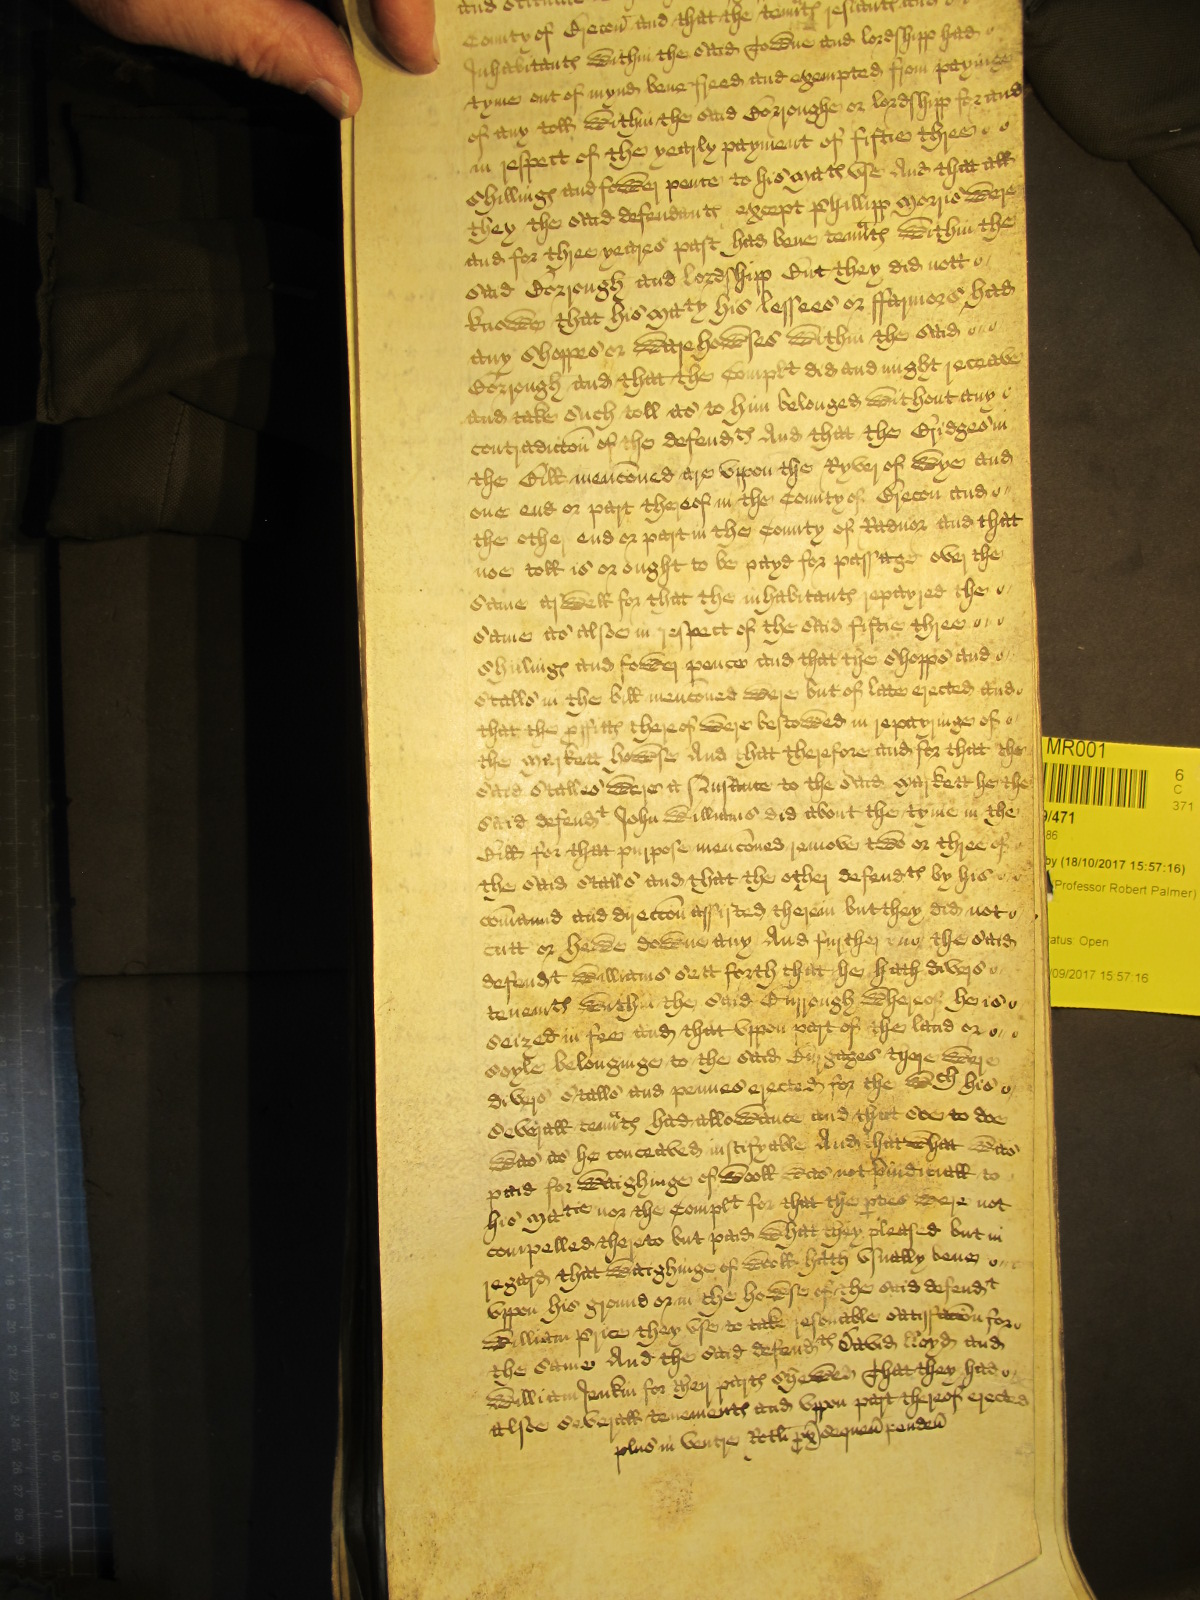 and scituate
County of Brecon and that the tennts resiants and
Inhabitants within the said Towne and lordshipp had
tyme out of mynd bene freed and exempted from payinge
of any toll within the said Borroughe or lordshipp for and
in respect of the yearly payment of fiftie three
shillings and fower pence to his Mats vse And that all
they the said defendants except Phillipp Morris were
and for three yeares past had bene tennts within the
said Borrough and lordshipp But they did nott
knowe that his Maty his lessees or ffarmors had
any shoppes or warehowses within the said
Borrough and that the Complt did and might receave
and take such toll as to him belonged without any
contradiccon of the defendts And that the Bridges in
the Bill mencioned are vppon the Ryver of Wye and
one end or part thereof in the County of Brecon and
the other end or part in the County of Radnor and that
noe toll is or ought to be payd for passage over the
same aswell for that the inhabitants repayred the
same as alsoe in respect of the said fiftie three
shillings and fower pence and that the shopps and
stalls in the bill mencioned were but of late erected and
that the proffitts thereof were bestowed in repayringe of
the Markett howse And that therefore and for that the
said stalles were a Nusance to the said Markett he the
said defendt John Williams did about the tyme in the
Bill for that purpose mencioned remove two or three of
the said stalls and that the other defendts by his
comannd and direccon assisted therein but they did not
cutt or hewe downe any And further the said
defendt Williams sett forth that he hath divers
tenemts within the said Burrough whereof he is
seized in fee and that vppon part of the land or
soyle belonginge to the said Burgages there were
divers stalls and pennes erected for the wch his
severall tennts had allowance and that soe to doe
was as he conceaved iustifyable And that what was
paid for waighinge of wooll was not preiudiciall to
his Matie nor the Complt for that the parties were not
compelled thereto but paid what they pleased but in
regard that waighinge of wooll hath vsually bene
vppon his ground or in the howse of the said defendt
William Price they vse to take resonable satisfaccon for
the same And the said defendts David lloyd and
William Jenkin for their parts shewed That they had
alsoe severall tenements and vppon part thereof erected
plus in ventre Rotli prox sequen penden
MR001
6
C
371
9/471
86
by (18/10/2017 15:57:16)
(Professor Robert Palmer)
tatus: Open
/09/2017 15:57:16